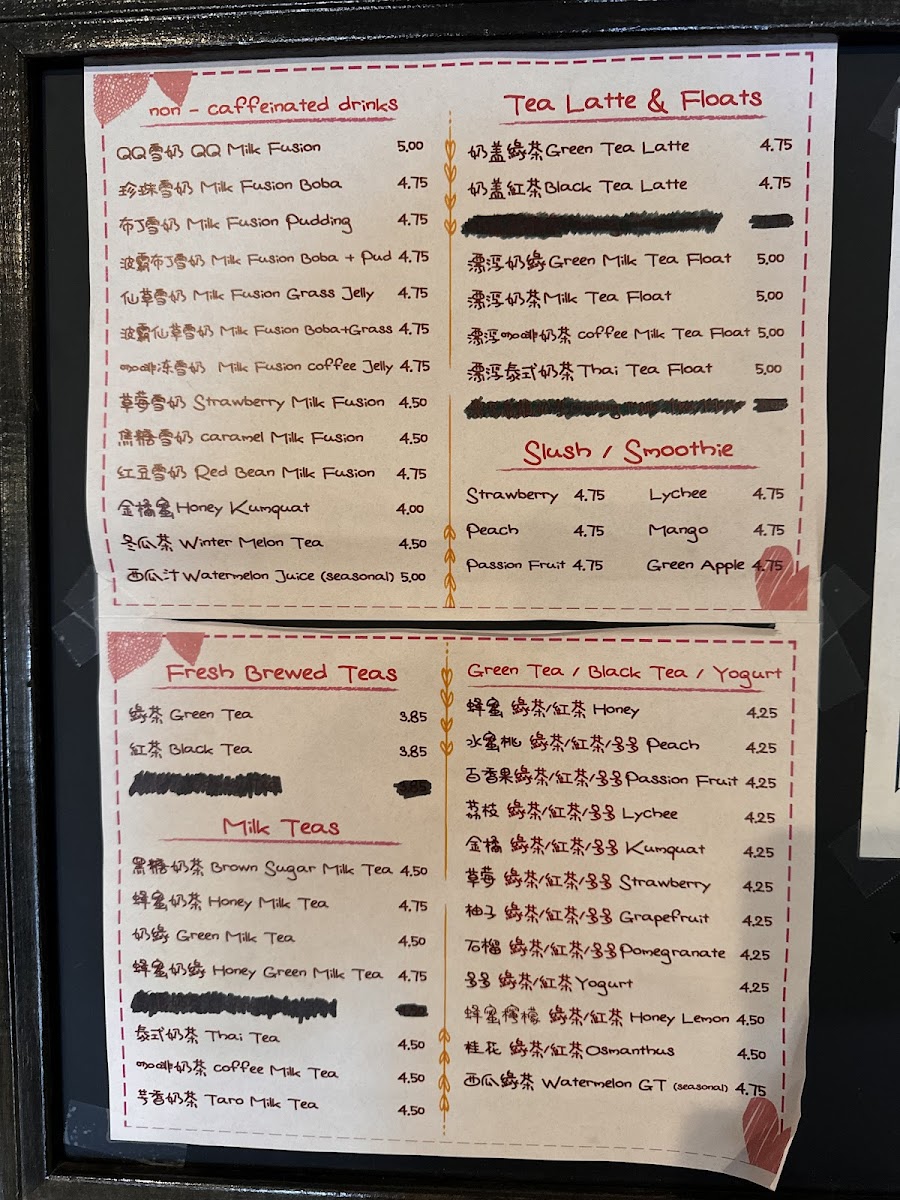 non - caffeinated drinks
QQ雪奶 QQ Milk Fusion 5.00
珍珠雪奶 Milk Fusion Boba 4.75
布丁雪奶 Milk Fusion Pudding 4.75
波霸布丁雪奶 Milk Fusion Boba + Pud 4.75
仙草雪奶 Milk Fusion Grass Jelly 4.75
波霸仙草雪奶 Milk Fusion Boba+Grass 4.75
咖啡冻雪奶 Milk Fusion coffee Jelly 4.75
草莓雪奶 Strawberry Milk Fusion 4.50
焦糖雪奶 caramel Milk Fusion 4.50
红豆雪奶 Red Bean Milk Fusion 4.75
金橘蜜 Honey Kumquat 4.00
冬瓜茶 Winter Melon Tea 4.50
西瓜汁 Watermelon Juice (seasonal) 5.00
Tea Latte & Floats
奶盖綠茶 Green Tea Latte 4.75
奶盖紅茶 Black Tea Latte 4.75
漂浮奶綠 Green Milk Tea Float 5.00
漂浮奶茶 Milk Tea Float 5.00
漂浮咖啡奶茶 coffee Milk Tea Float 5.00
漂浮泰式奶茶 Thai Tea Float 5.00
Slush / Smoothie
Strawberry 4.75 Lychee 4.75
Peach 4.75 Mango 4.75
Passion Fruit 4.75 Green Apple 4.75
Fresh Brewed Teas
綠茶 Green Tea 3.85
紅茶 Black Tea 3.85
3.85
Milk Teas
黑糖奶茶 Brown Sugar Milk Tea 4.50
蜂蜜奶茶 Honey Milk Tea 4.75
奶綠 Green Milk Tea 4.50
蜂蜜奶綠 Honey Green Milk Tea 4.75
泰式奶茶 Thai Tea 4.50
咖啡奶茶 coffee Milk Tea 4.50
芋香奶茶 Taro Milk Tea 4.50
Green Tea / Black Tea / Yogurt
蜂蜜 綠茶/紅茶 Honey 4.25
水蜜桃 綠茶/紅茶/多多 Peach 4.25
百香果綠茶/紅茶/多多 Passion Fruit 4.25
荔枝 綠茶/紅茶/多多 Lychee 4.25
金橘 綠茶/紅茶/多多 Kumquat 4.25
草莓 綠茶/紅茶/多多 Strawberry 4.25
柚子 綠茶/紅茶/多多 Grapefruit 4.25
石榴 綠茶/紅茶/多多 Pomegranate 4.25
多多 綠茶/紅茶 Yogurt 4.25
蜂蜜檸檬 綠茶/紅茶 Honey Lemon 4.50
桂花 綠茶/紅茶 Osmanthus 4.50
西瓜綠茶 Watermelon GT (seasonal) 4.75